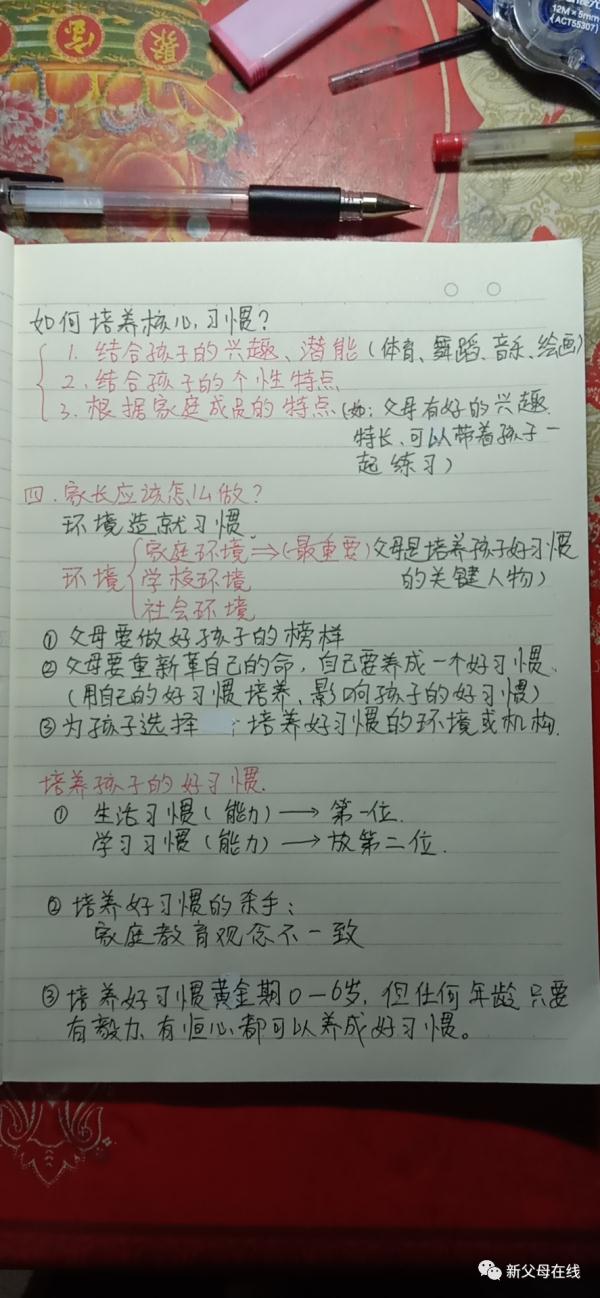 聚
宫
12M×5mm
(ACT55307)
如何培养核心习惯?
1. 结合孩子的兴趣、潜能(体育、舞蹈、音乐、绘画)
2. 结合孩子的个性特点
3. 根据家庭成员的特点(如:父母有好的兴趣、
特长、可以带着孩子一
起练习)
四.家长应该怎么做?
环境造就习惯。
家庭环境⇒(最重要)父母是培养孩子好习惯
环境 学校环境 的关键人物)
社会环境
① 父母要做好孩子的榜样
② 父母要重新革自己的命,自己要养成一个好习惯、
(用自己的好习惯培养、影响孩子的好习惯)
③ 为孩子选择 ;培养好习惯的环境或机构.
培养孩子的好习惯.
① 生活习惯(能力)→第一位.
学习习惯(能力)→放第二位.
② 培养好习惯的杀手:
家庭教育观念不一致
③ 培养好习惯黄金期0—6岁,但任何年龄只要
有毅力、有恒心都可以养成好习惯。
新父母在线